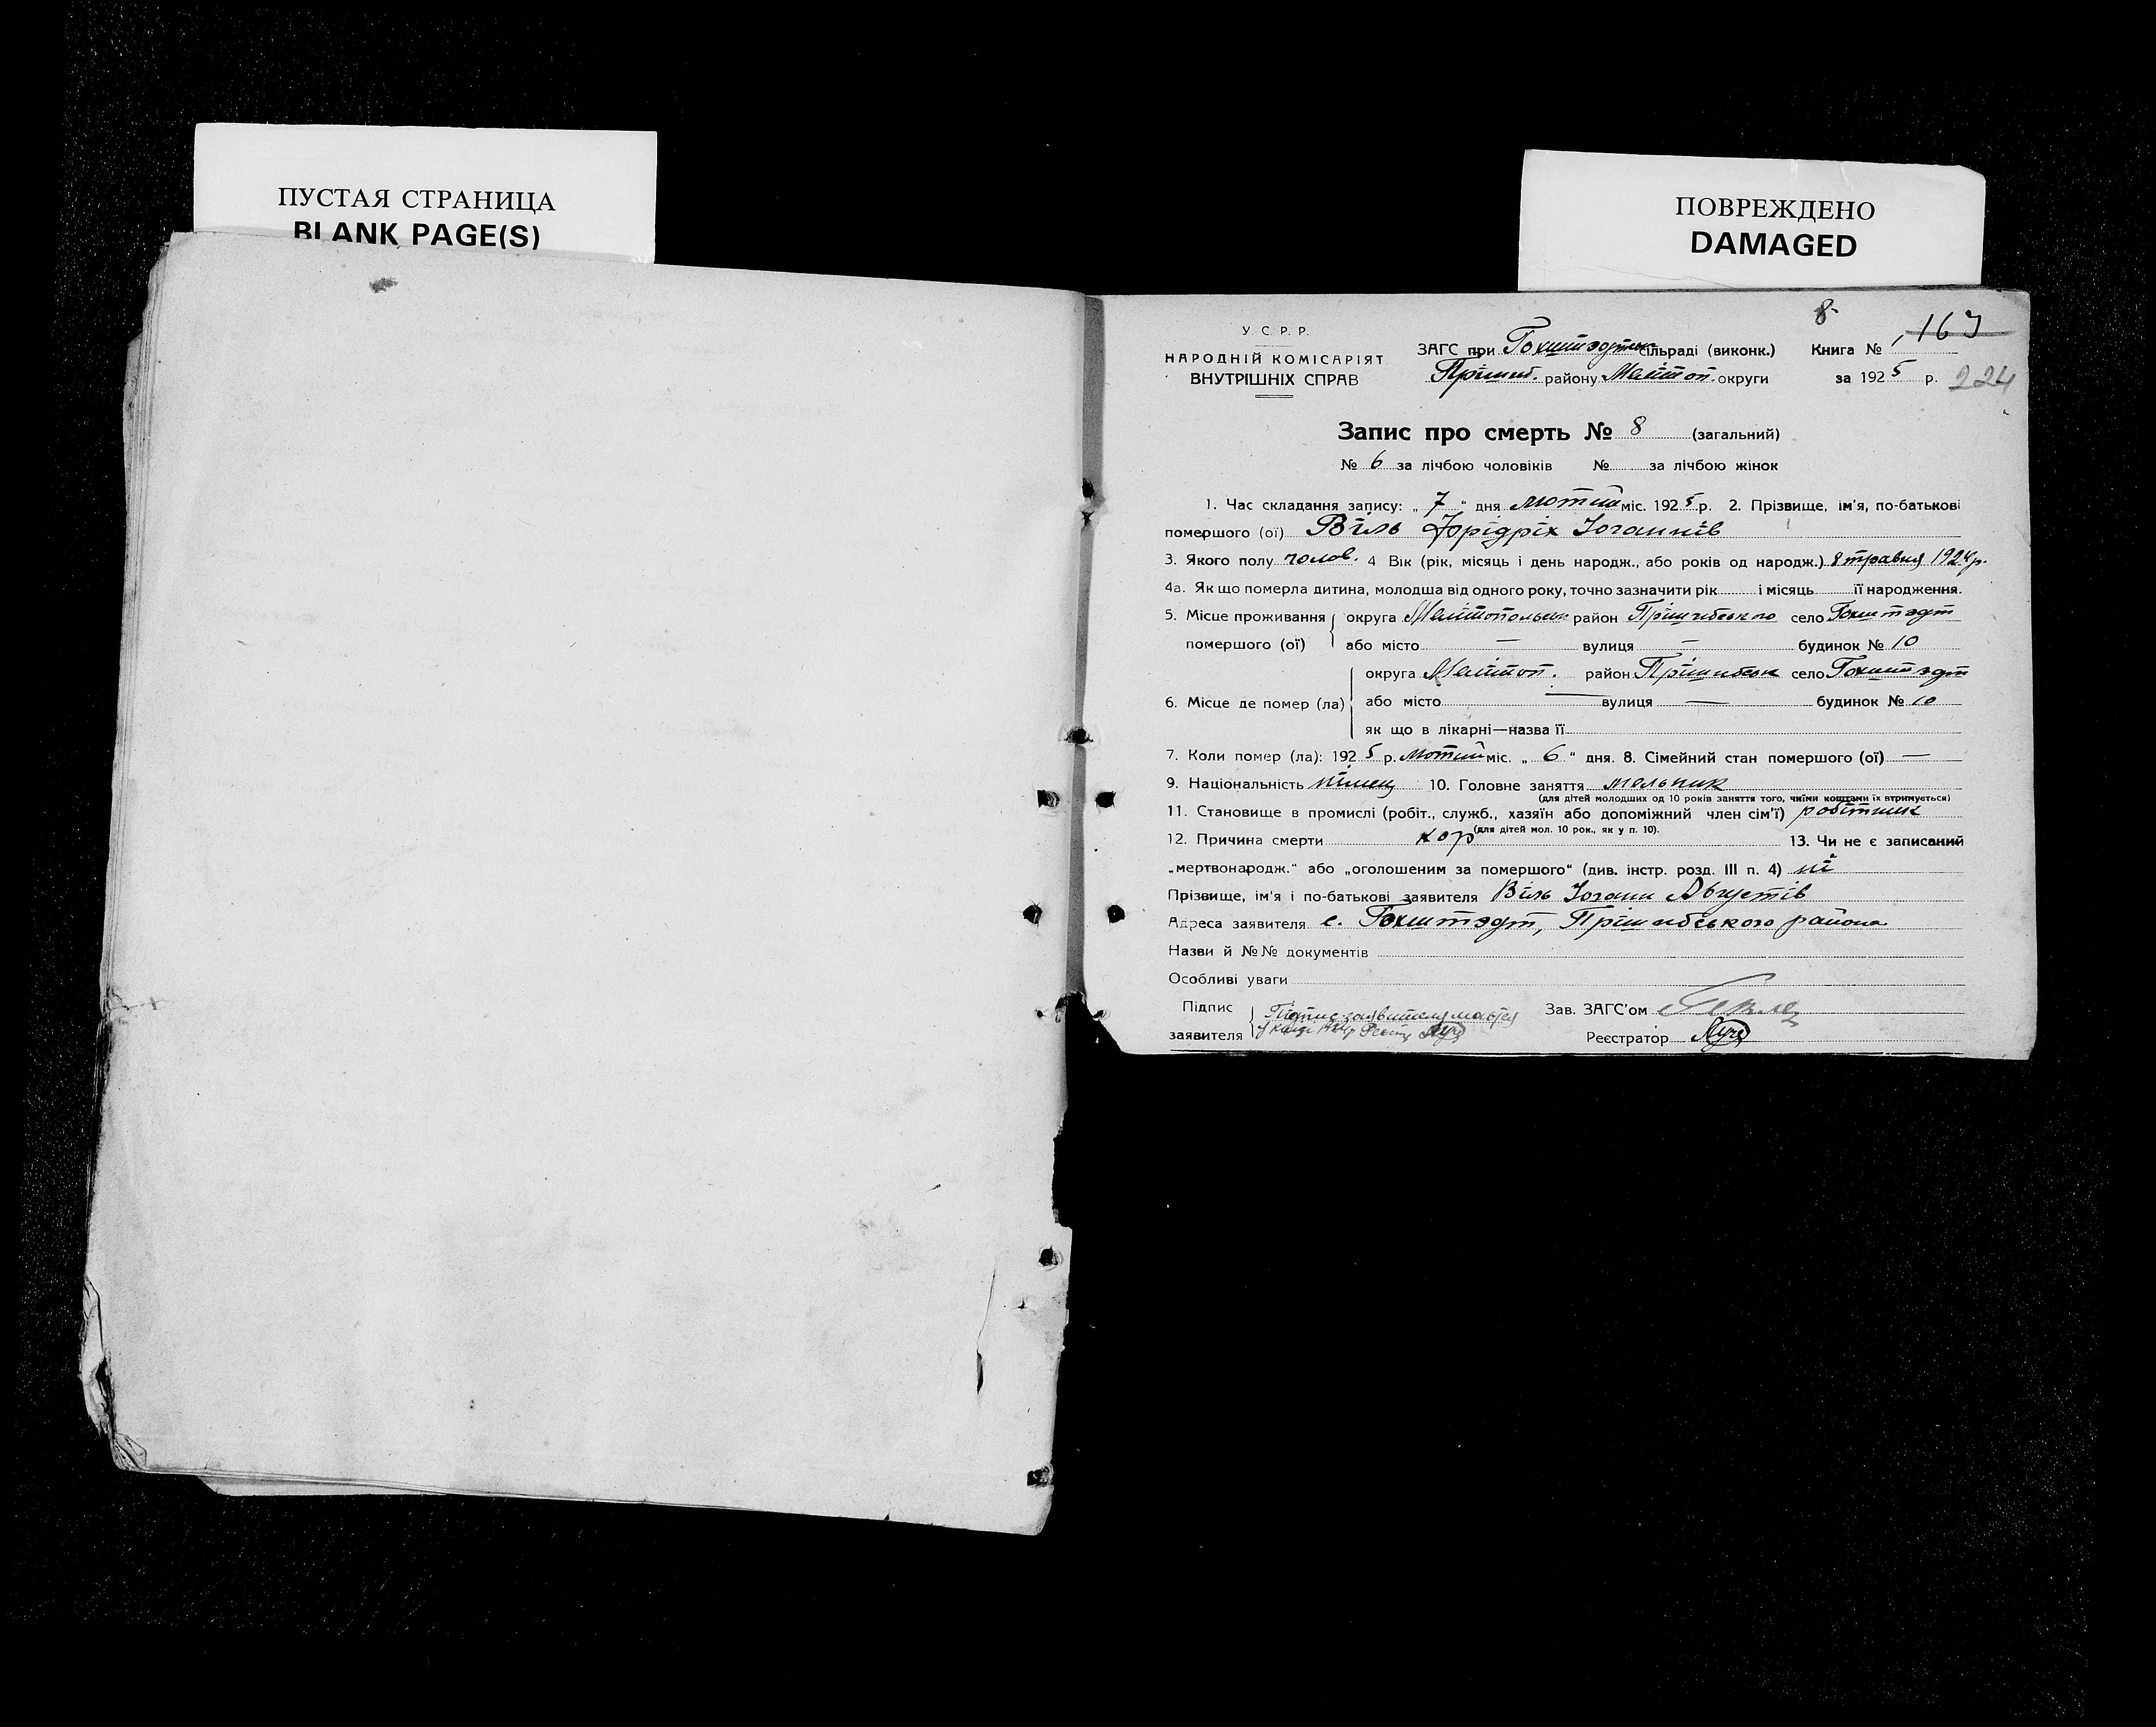 ПУСТАЯ СТРАНИЦА
BLANK PAGE(S)
ПОВРЕЖДЕНО
DAMAGED
8
У. С. Р. Р.
НАРОДНІЙ КОМІСАРІЯТ
ВНУТРІШНІХ СПРАВ
ЗАГС при Гохштэдтск сільраді (виконк.) Книга № 167
Пришиб. району Мелітоп. округи за 1925 р. 224
Запис про смерть № 8 (загальний)
№ 6 за лічбою чоловіків № за лічбою жінок
1. Час складання запису: „ 7 " дня лютий міс. 1925 р. 2. Прізвище, ім'я, по-батькові
помершого (ої) Віль Фрідріх Іоганнів
3. Якого полу чолов. 4 Вік (рік, місяць і день народж., або років од народж.) 8 травня 1924р.
4а. Як що померла дитина, молодша від одного року, точно зазначити рік і місяць її народження.
5. Місце проживання округа Мелітопольск район Прішибського село Гохштэдт
помершого (ої) або місто — вулиця — будинок № 10
округа Мелітоп. район Прішибськ село Гохштэдт
6. Місце де помер (ла) або місто — вулиця — будинок № 10
як що в лікарні—назва її
7. Коли помер (ла): 1925 р. лютий міс. „ 6 " дня. 8. Сімейний стан помершого (ої) —
9. Національність німец 10. Головне заняття мельник
(для дітей молодших од 10 років заняття того, чиїми коштами їх втримується)
11. Становище в промислі (робіт., служб., хазяїн або допоміжний член сім'ї) робітник
(для дітей мол. 10 рок., як у п. 10).
12. Причина смерти кор 13. Чи не є записаний
„мертвонародж." або „оголошеним за помершого" (див. інстр. розд. III п. 4) ні
Прізвище, ім'я і по-батькові заявителя Віль Іоганн Августів
Адреса заявителя с. Гохштэдт, Прішибського района
Назви й №№ документів
Особливі уваги
Підпис Підпис заявителя мается Зав. ЗАГС'ом
заявителя Реєстратор